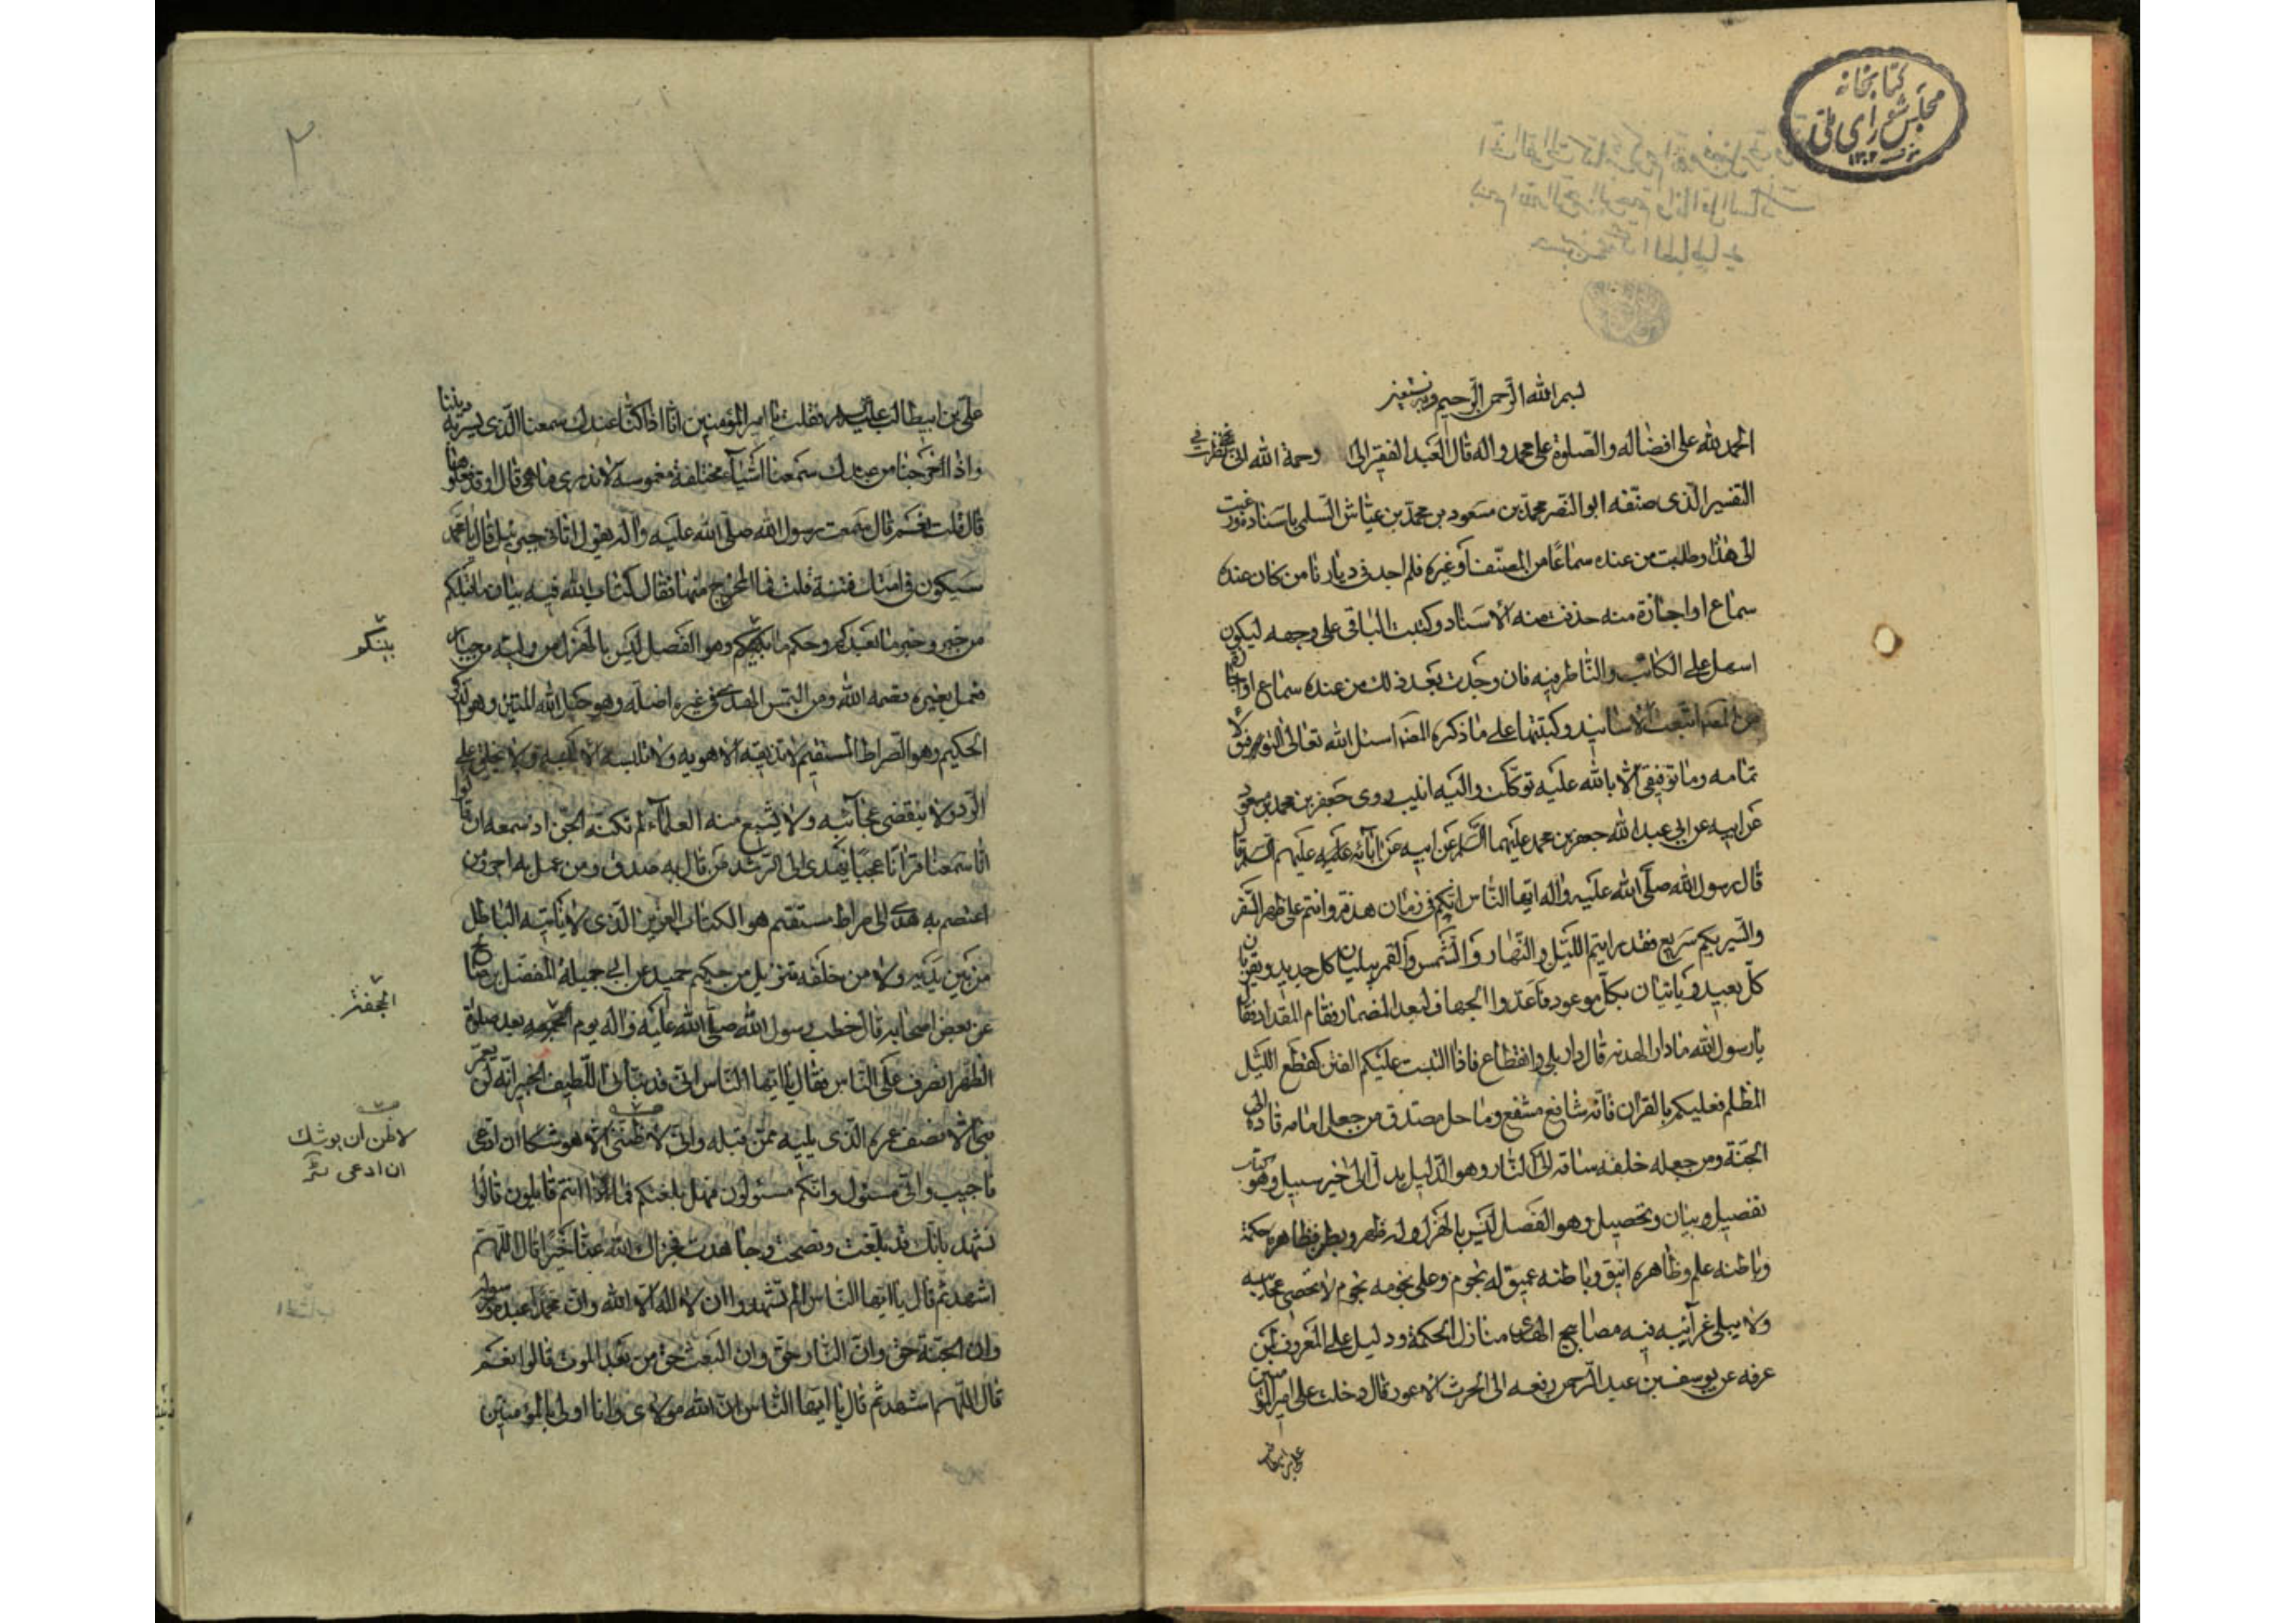 كتابخانه
مجلس شورای ملی
١٣٠٢
بسم الله الرحمن الرحيم وبه نستعين
الحمد لله على افضاله والصلوة على محمد واله قال العبد الفقير الى رحمة الله انى نظرت فى
التفسير الذى صنفه ابو النصر محمد بن مسعود بن محمد بن عياش السلمى باسناده ورغبت
الى هذا وطلبت من عنده سماعا من المصنف او غيره فلم اجد فى ديارنا من كان عنده
سماع او اجازة منه حذفت منه الاسناد وكتبت الباقى على وجهه ليكون
اسهل على الكاتب والناظر فيه فان وجدت بعد ذلك من عنده سماع او اجازة
من المصنف اتبعت الاسانيد وكتبتها على ما ذكره المصنف اسئل الله تعالى التوفيق لا
تمامه وما توفيقى الا بالله عليه توكلت واليه انيب روى جعفر بن محمد بن مسعود
عن ابيه عن ابي عبد الله جعفر بن محمد عليهما السلم عن ابيه عن ابائه عليهم السلم قال
قال رسول الله صلى الله عليه واله ايها الناس انكم فى زمان هدنة وانتم على ظهر السفر
والسير بكم سريع فقد رايتم الليل والنهار والشمس والقمر يبليان كل جديد ويقربان
كل بعيد وياتيان بكل موعود فاعدوا الجهاز لبعد المضمار فقام المقداد فقال
يا رسول الله ما دار الهدنة قال دار بلى وانقطاع فاذا التبست عليكم الفتن كقطع الليل
المظلم فعليكم بالقران فانه شافع مشفع وماحل مصدق من جعله امامه قاده الى
الجنة ومن جعله خلفه ساقه الى النار وهو الدليل يدل الى خير سبيل وهو كتاب
تفصيل وبيان وتحصيل وهو الفصل ليس بالهزل وله ظهر وبطن فظاهره حكمة
وباطنه علم وظاهره انيق وباطنه عميق له نجوم وعلى نجومه نجوم لا تحصى عجائبه
ولا يبلى غرائبه فيه مصابيح الهدى منازل الحكمة ودليل على المعروف لمن
عرفه عن يوسف بن عبد الرحمن رفعه الى الحرث الاعور قال دخلت على امير المؤمنين
على بن ابيطالب
٢
على بن ابيطالب عليه السلم فقلت يا امير المؤمنين انا اذا كنا عندك سمعنا الذى يسر به ديننا
واذا خرجنا من عندك سمعنا اشياء مختلفة مغموسة لا ندرى ما هى قال او قد فعلوها
قال قلت نعم قال سمعت رسول الله صلى الله عليه واله يقول اتانى جبرئيل قال يا محمد
سيكون فى امتك فتنة قلت فما المخرج منها فقال كتاب الله فيه بيان ما قبلكم
من خبر وخبر ما بعدكم وحكم ما بينكم وهو الفصل ليس بالهزل من وليه من جبار
بينكم
فعمل بغيره قصمه الله ومن التمس الهدى فى غيره اضله وهو حبل الله المتين وهو الذكر
الحكيم وهو الصراط المستقيم لا تزيغه الاهويه ولا تلبسه الالسنه ولا يخلق على
الرد ولا ينقضى عجائبه ولا يشبع منه العلماء لم تكنه الجن اذ سمعه ان قالوا
انا سمعنا قرانا عجبا يهدى الى الرشد من قال به صدق ومن عمل به اجر ومن
اعتصم به هدى الى صراط مستقيم هو الكتاب العزيز الذى لا ياتيه الباطل
من بين يديه ولا من خلفه تنزيل من حكيم حميد عن ابى جميلة المفضل بن صالح
عن بعض اصحابه قال خطب رسول الله صلى الله عليه واله يوم الجمعه بعد صلوة
الظهر انصرف على الناس فقال يا ايها الناس انى قد نبأنى اللطيف الخبير انه لن يعمر
نبى الا نصف عمر الذى يليه ممن قبله وانى لاظننى
لاظن ان يوشك
ان ادعى
فاجيب وانى مسئول وانكم مسئولون فهل بلغتكم فماذا انتم قايلون قالوا
نشهد بانك قد بلغت ونصحت وجاهدت فجزاك الله عنا خيرا قال اللهم
اشهد ثم قال يا ايها الناس الم تشهدوا ان لا اله الا الله وان محمدا عبده ورسوله
وان الجنة حق وان النار حق وان البعث حق من بعد الموت قالوا نعم
قال اللهم اشهد ثم قال يا ايها الناس ان الله مولاى وانا اولى بالمؤمنين